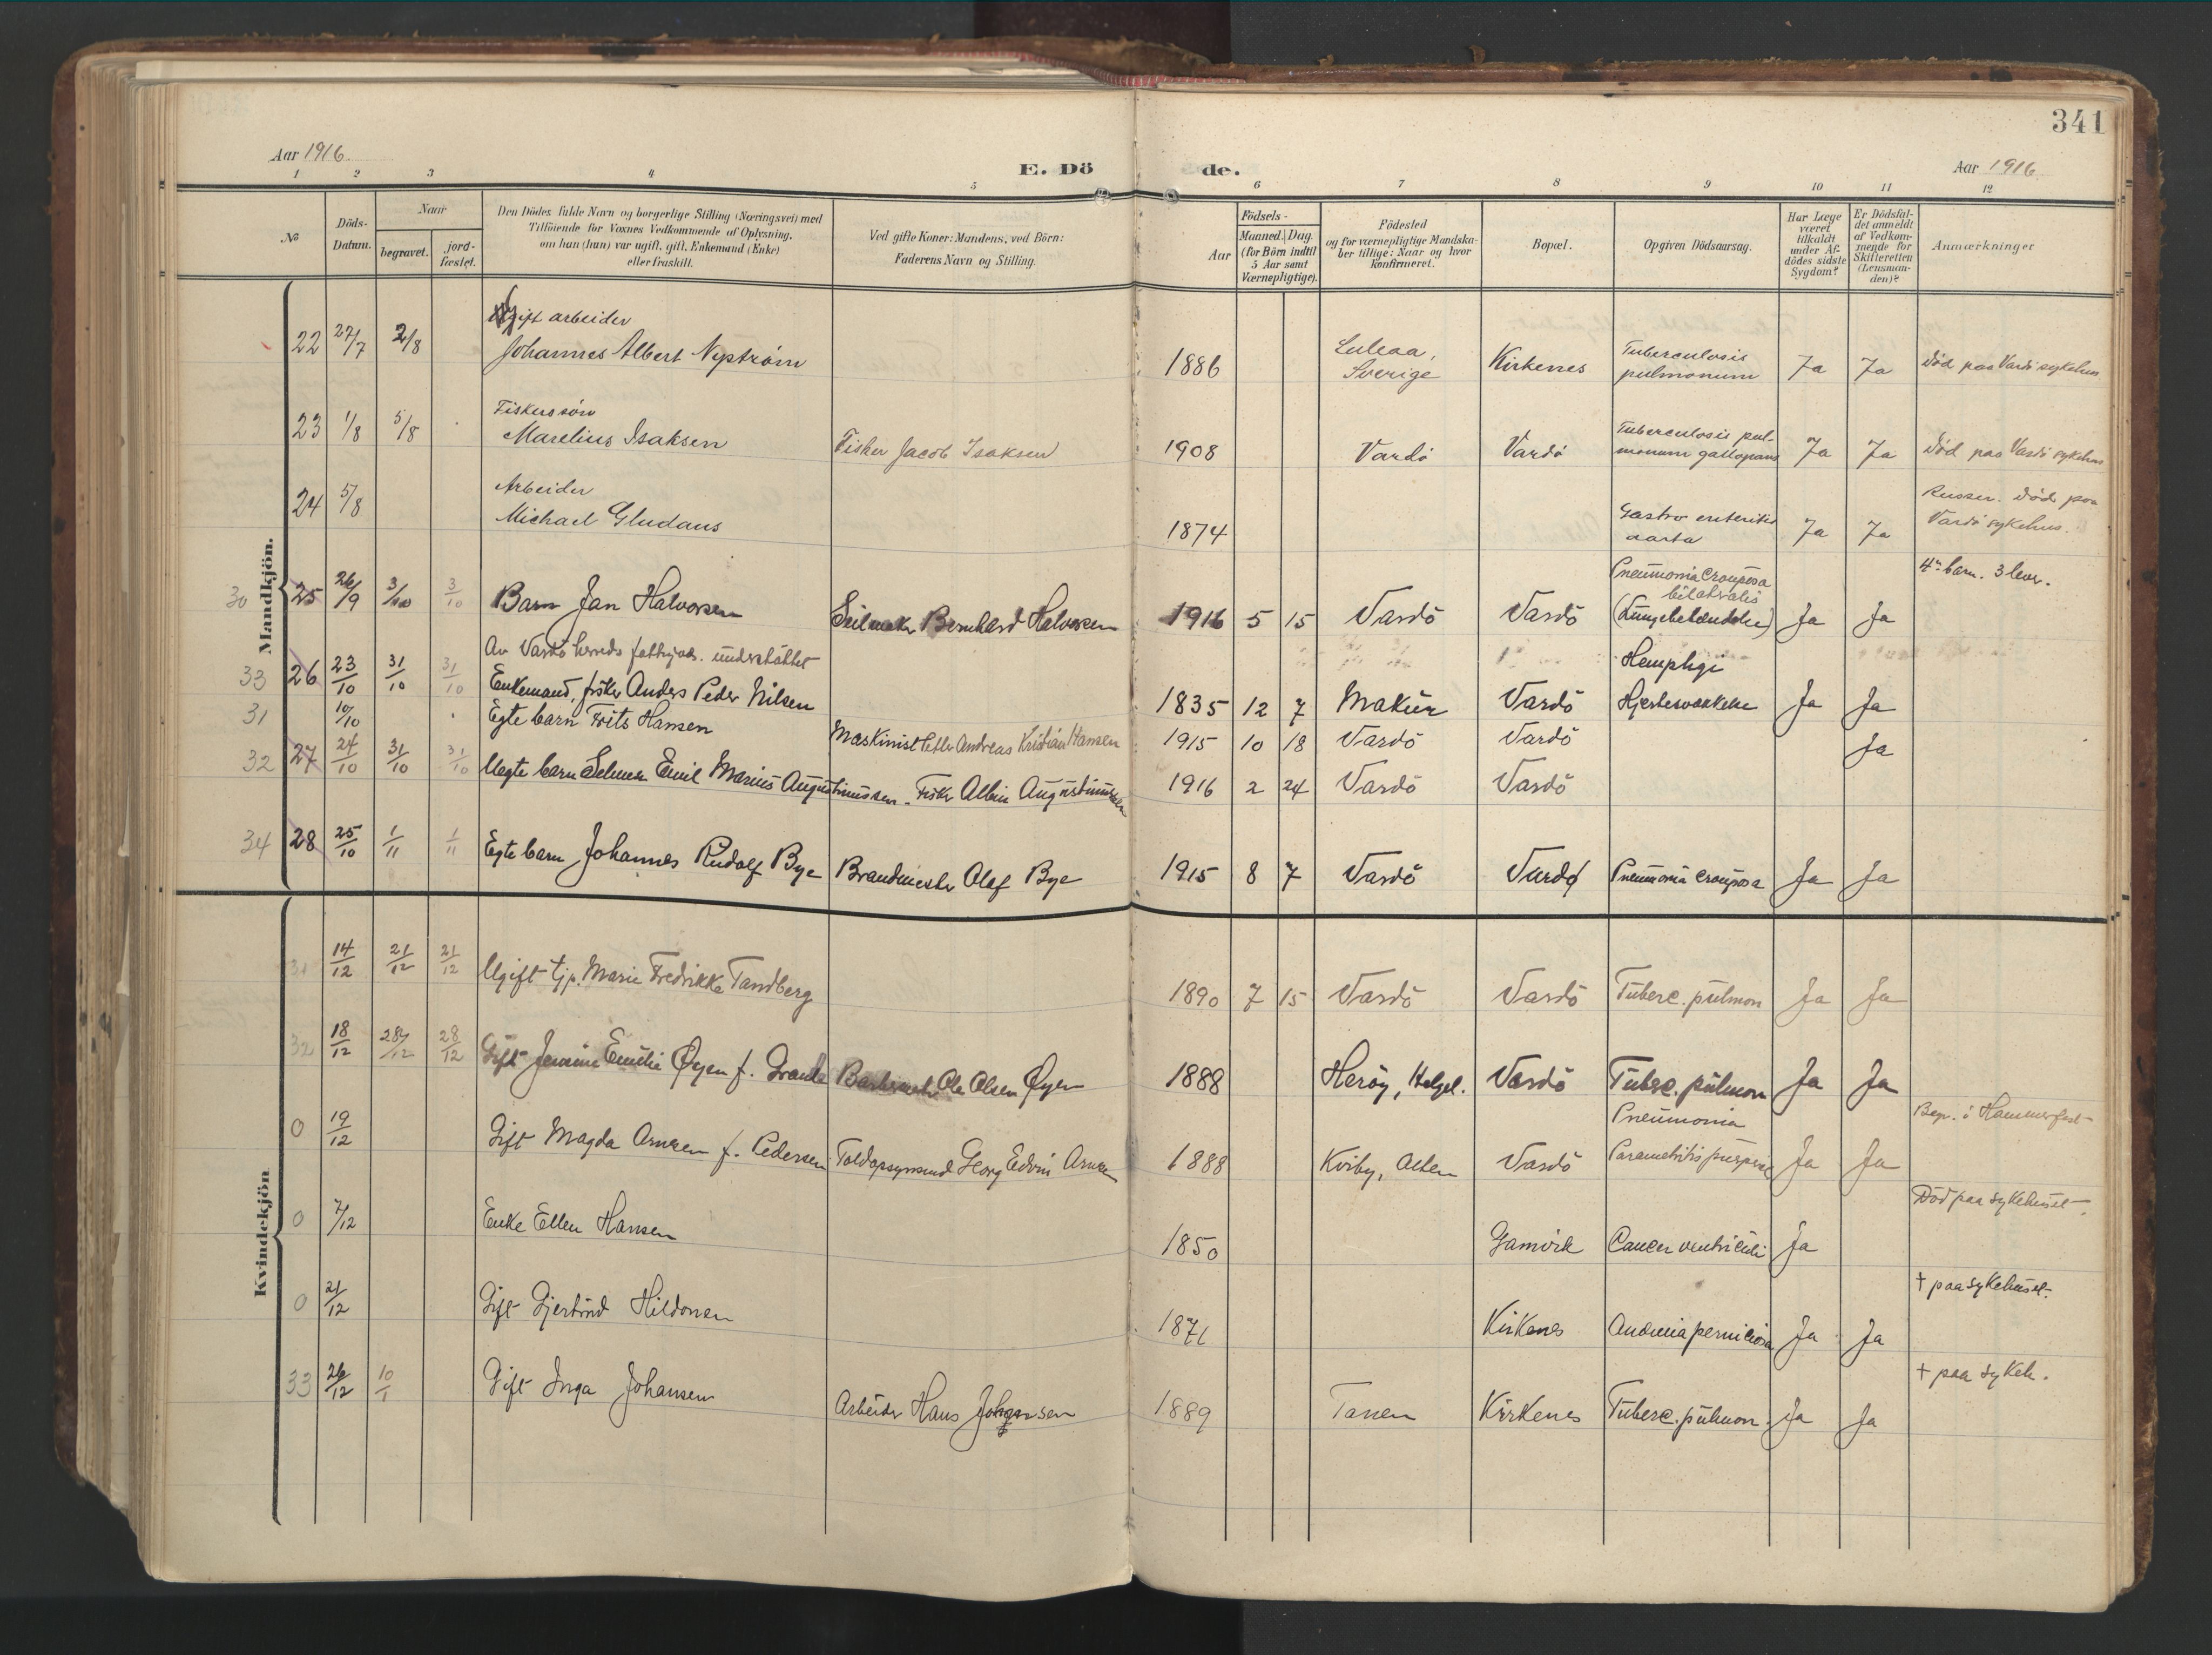 341
Aar 1916
E. Dö
de.
Aar 1916
1 2 3 4 5 6 7 8 9 10 11 12
№
Döds-
Datum.
Naar
begravet.
jord-
fæstet.
Den Dödes fulde Navn og borgerlige Stilling (Næringsvei) med
Tilföiende for Voxnes Vedkommende af Oplysning,
om han (hun) var ugift, gift, Enkemand (Enke)
eller fraskilt.
Ved gifte Koner: Mandens, ved Börn:
Faderens Navn og Stilling.
Födsels-
Aar
Maaned. Dag.
(for Börn indtil
5 Aar samt
Værnepligtige).
Födested
og for værnepligtige Mandska-
ber tillige: Naar og hvor
Konfirmeret.
Bopæl.
Opgiven Dödsaarsag.
Har Læge
været
tilkaldt
under Af-
dödes sidste
Sygdom?
Er Dödsfal-
det anmeldt
af Vedkom-
mende for
Skifteretten
(Lensman-
den)?
Anmærkninger
Mandkjön.
gift arbeider
22 27/7 2/8 Johannes Albert Nyström 1886 Luleaa, Sverige Kirkenes Tuberculosis pulmonum Ja Ja Död paa Vardö sykehus
Fiskerssön
23 1/8 5/8 Marelius Isaksen Fisker Jacob Isaksen 1908 Vardö Vardö Tuberculosis pul-
monum gallopans Ja Ja Död paa Vardö sykehus
Arbeider
24 5/8 Michael Gludans 1874 Gastro enteritis
Ja Ja Russer. Död paa
Vardö sykehus.
30 25 26/9 3/10 3/10 Barn Jan Halvorsen Seilmaker Bernhard Halvorsen 1916 5 15 Vardö Vardö Pneumonia Crouposa
bilateralis
(Lungebetændelse) Ja Ja 4de barn. 3 lever.
Av Vardö herreds fattigvæs. understöttet
33 26 23/10 31/10 31/10 Enkemand, fisker Anders Peder Nilsen 1835 12 7 Makur Vardö Hemplegi
Hjertesvækkelse Ja Ja
31 10/10 Egte barn Frits Hansen Maskinist Petter Andreas Kristian Hansen 1915 10 18 Vardö Vardö Ja
32 27 24/10 31/10 31/10 Uegte barn Selmer Emil Marius Augustinussen. Fisker Albin Augustinussen 1916 2 24 Vardö Vardö
34 28 25/10 1/11 1/11 Egte barn Johannes Rudolf Bye Brandmester Olaf Bye 1915 8 7 Vardö Vardö Pneumonia crouposa Ja Ja
Kvindekjön
31 14/12 21/12 21/12 Ugift tjp. Marie Fredrikke Tandberg 1890 7 15 Vardö Vardö Tuberc. pulmon Ja Ja
32 18/12 28/12 28/12 Gift Jennine Emilie Øyen f. Grande Ole Olsen Øyen 1888 Heröy, Helgel. Vardö Tuberc. pulmon Ja Ja
0 19/12 Gift Magda Arnesen f. Pedersen Toldopsynsmand Georg Edvin Arnesen 1888 Kviby, Alten Vardö Pneumonia
Parametritis Ja Ja Begr. i Hammerfest
0 7/12 Enke Ellen Hansen 1850 Gamvik Cancer ventriculi Ja Död paa sykehuset.
0 21/12 Gift Gjertrud Hildonen 1871 Kirkenes Anæmia perniciosa Ja Ja † paa sykehuset.
33 26/12 10/1 Gift Inga Johansen Arbeider Hans Johansen 1889 Tanen Kirkenes Tuberc. pulmon. Ja Ja † paa sykeh.